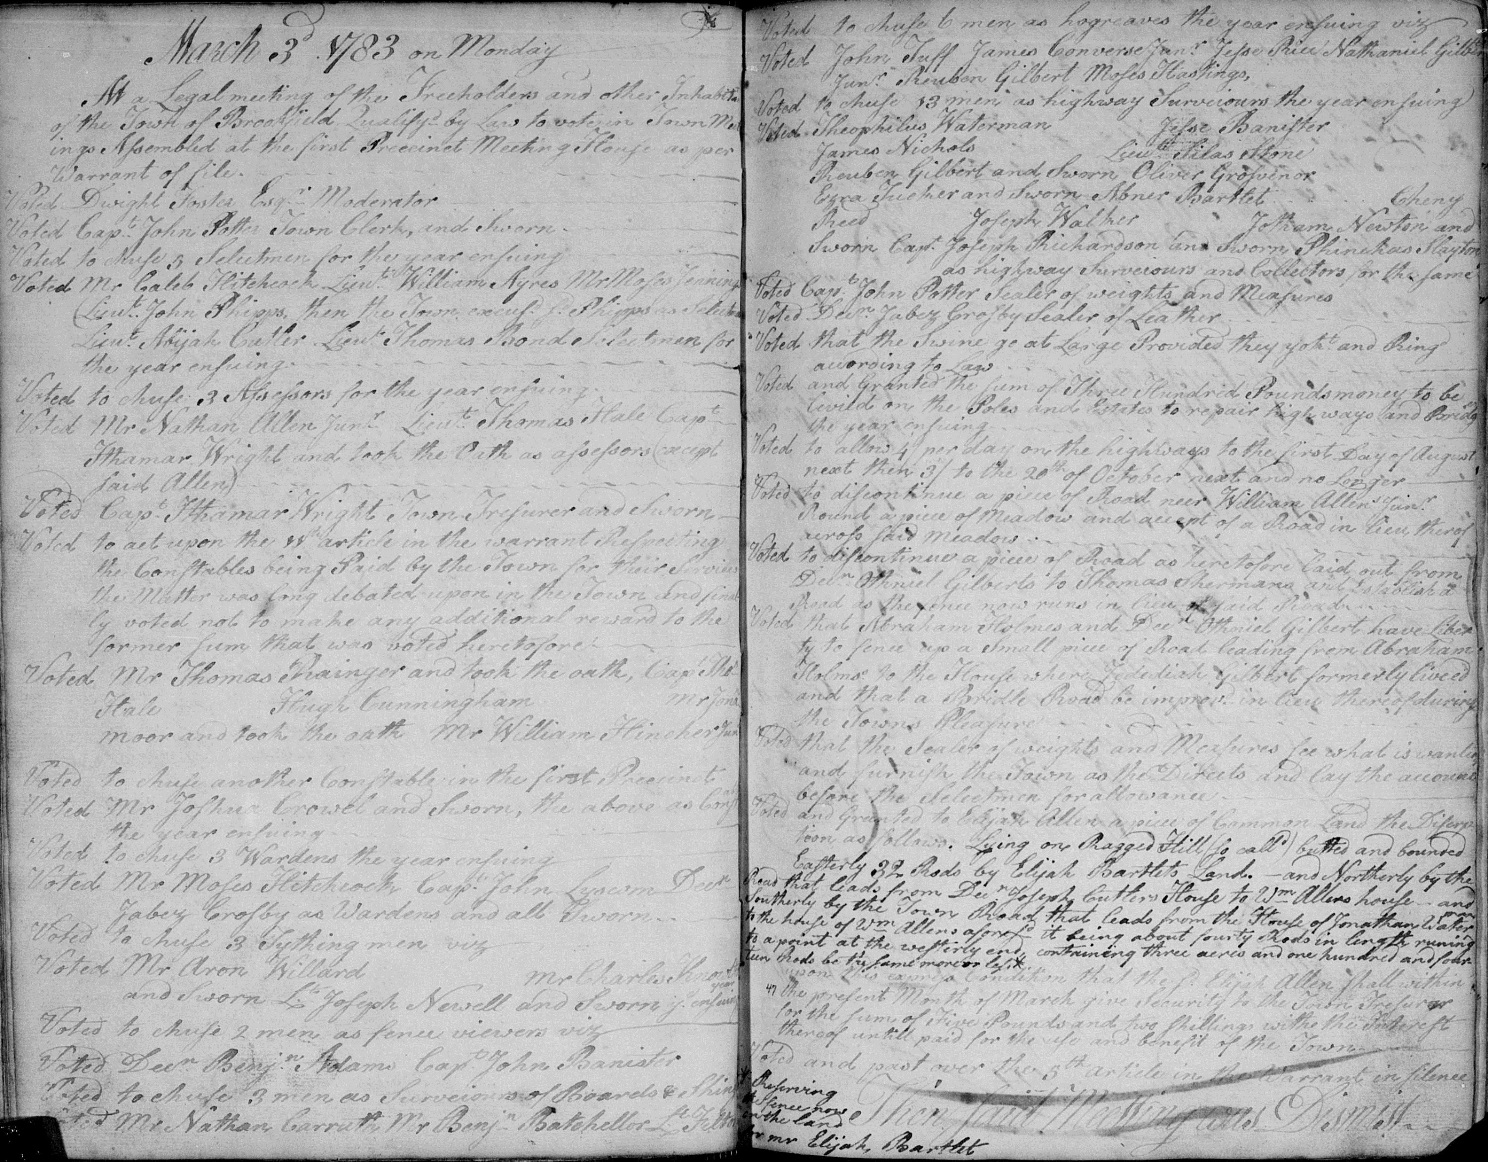 March 3d 1783 on Monday
At a Legal meeting of the Freeholders and other Inhabita
of the Town of Brookfield Qualifyd by Law to vote in Town Me
ings Assembled at the first Precinct Meeting House as per
Warrant of file.
Voted Dwight Foster Esqr Moderator
Voted Capt John Potter Town Clerk, and Sworn.
Voted to chuse 5 Selectmen for the year ensuing
Voted Mr Caleb Hitchcock Lieut William Ayres Mr Moses Jennings
(Lieut John Phipps, then the Town excusd sd Phipps as Select
Lieut Abijah Cutler Lieut Thomas Bond Selectmen for
the year ensuing.
Voted to chuse 3 Assessors for the year ensuing.
Voted Mr Nathan Allen Junr Lieut Thomas Hale Capt
Ithamar Wright and took the Oath as assessors (except
said Allen)
Voted Capt Ithamar Wright Town Tresurer and Sworn
Voted to act upon the 11th article in the warrant Respecting
the Constables being Paid by the Town for their Services
the Matter was long debated upon in the Town and final
ly voted not to make any additional reward to the
former sum that was voted heretofore
Voted Mr Thomas Rainger and took the oath, Capt Tho
Hale Hugh Cunningham Mr Jona
moor and took the oath Mr William Hincher Jun
Voted to chuse another Constable in the first Precinct
Voted Mr Joshua Crowel and Sworn, the above as Const
the year ensuing
Voted to chuse 3 Wardens the year ensuing
Voted Mr Moses Hitchcock, Capt John Lyscom Decn
Jabez Crosby as Wardens and all Sworn
Voted to chuse 3 Tythingmen viz
Voted Mr Aron Willard Mr Charles
and Sworn Lt Joseph Newell and Sworn ye year ensuing
Voted to chuse 2 men as fence viewers viz
Voted Decn Benjn Adams Capt John Banister
Voted to chuse 3 men as Surveiours of Boards & Shin
Voted Mr Nathan Carruth Mr Benjn Batchellor Lt
Voted to chuse 6 men as hogreaves the year ensuing viz
Voted John Tuff James Converse Junr Jesse Rice Nathaniel Gilbe
Junr Reuben Gilbert Moses Hastings,
Voted to chuse 13 men as highway Surveiours the year ensuing
Voted Theophilus Waterman Jesse Banister
James Nichols Lieut Silas Stone
Reuben Gilbert and Sworn Oliver Grosvinor
Ezra Tucker and Sworn Abner Bartlet Cheny
Reed Joseph Walker Jotham Newton and
Sworn Capt Joseph Richardson and Sworn Phinehas Slayton
as highway Surveiours and Collectors for the same
Voted Capt John Potter Sealer of weights and Measures
Voted Decn Jabez Crosby Sealer of Leather
Voted that the Swine go at Large Provided they yokt and Ring
according to Law
Voted and Granted the sum of Three Hundred Pounds money to be
levied on the Poles and Estates to repair high ways and Bridg
the year ensuing
Voted to allow 4/ per day on the highways to the first Day of August
next then 3/ to the 20th of October next and no Longer
Voted to discontinue a piece of Road neer William Allens Junr
Round a piece of Meadow and accept of a Road in lieu therof
across said Meadow
Voted to discontinue a piece of Road as heretofore laid out from
Decn Othniel Gilberts to Thomas Shermans and Establish a
Road as the fence now runs in lieu of said Road
Voted that Abraham Holmes and Decn Othniel Gilbert have liber
ty to fence up a small piece of Road leading from Abraham
Holms to the House where Jedediah Gilbert formerly lived
and that a Bridle Road be improvd in lieu thereof during
the Towns Pleasure
Voted that the Sealer of weights and Measures see what is wanting
and furnish the Town as the Directs and lay the account
before the Selectmen for allowance
Voted and Granted to Elijah Allen a piece of Common Land the Discrip
tion as follows. Lying on Ragged Hill (so calld) butted and bounded
Easterly 32 Rods by Elijah Bartlets Land. and Northerly by the
Road that leads from Decn Joseph Cutlers House to Wm Allens house and
Southerly by the Town Road that leads from the House of Jonathan Water man
to the house of Wm Allens aforesd it being about fourty Rods in length runing
to a point at the westirly end, containing three acres and one hundred and four
teen Rods be the same more or less
upon this express Condition that the sd Elijah Allen shall within
the present Month of March give Security to the Town Tresurer
for the sum of Five Pounds and two shillings withe the Interest
therof untill paid for the use and benefit of the Town
Voted and past over the 5th article in the Warrant in silence
Then said Meeting was Dismist
Reserving
the fence now
on the land
for mr Elijah Bartlet